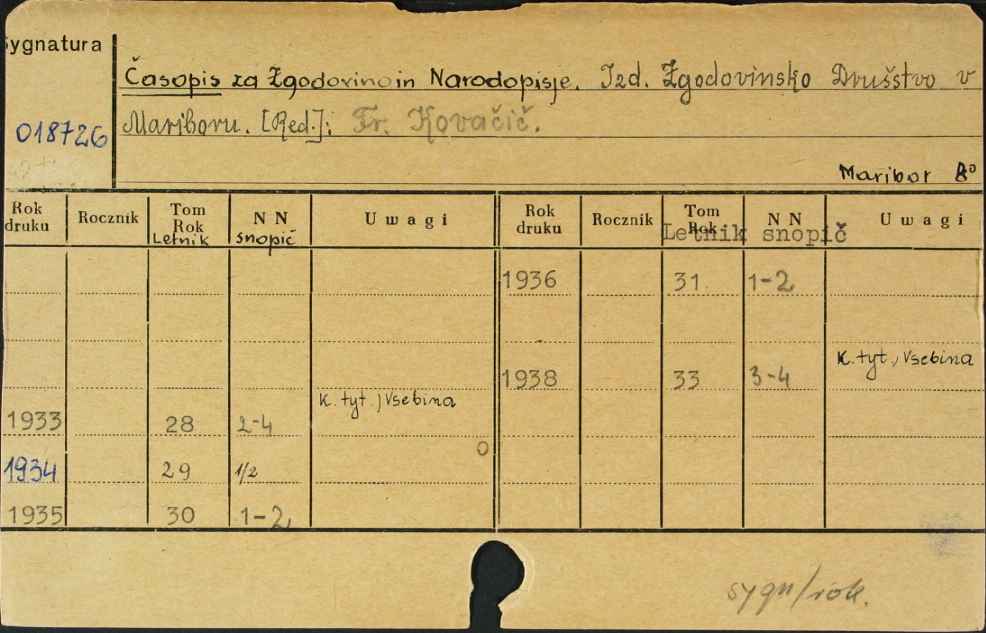 Sygnatura
Časopis za Zgodovino in Narodopisje. Izd. Zgodovinsko Društvo v
018726
Mariboru. [Red.]: Fr. Kovačič.
Maribor 8°
Rok druku Rocznik Tom Rok Letnik NN snopič Uwagi Rok druku Rocznik Tom Rok Letnik NN snopič Uwagi
1936 31 1-2
1938 33 3-4 K. tyt., Vsebina
1933 28 2-4 K. tyt., Vsebina
0
1934 29 1/2
1935 30 1-2
sygn/rok.